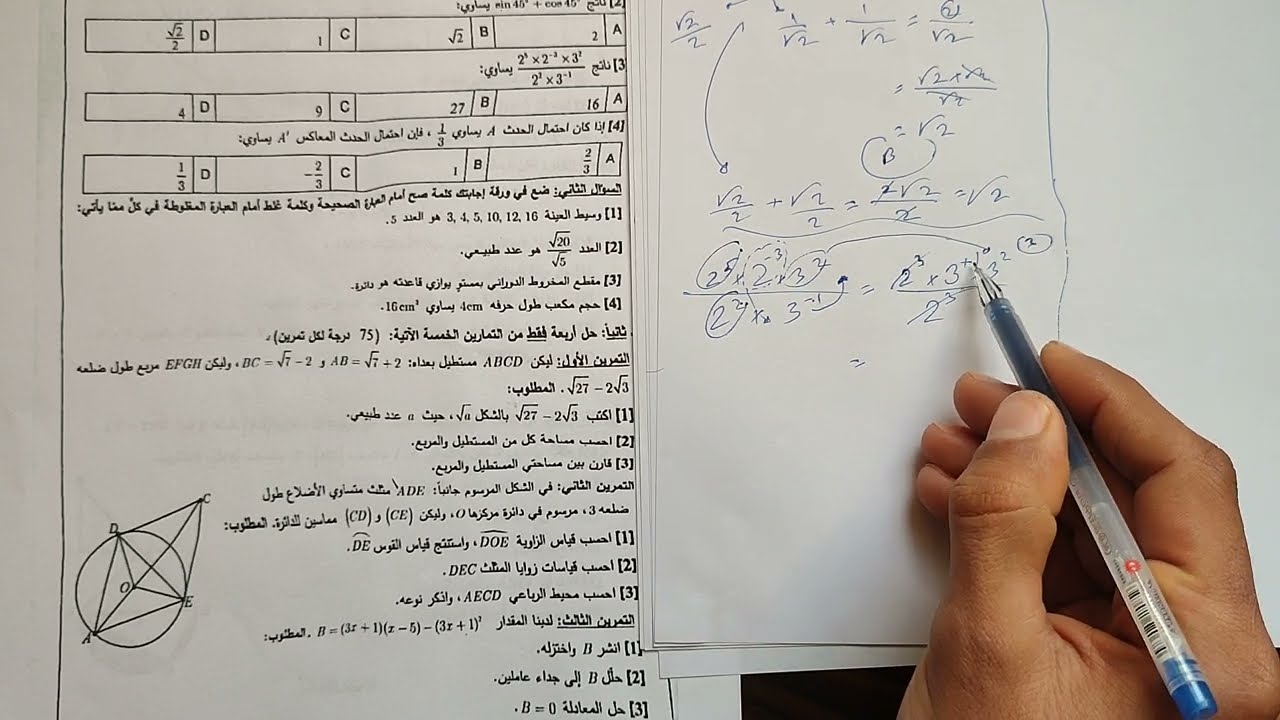 [2] ناتج sin 45° + cos 45° يساوي:
A 2 B √2 C 1 D √2/2
[3] ناتج (2⁵ × 2⁻³ × 3²)/(2² × 3⁻¹) يساوي:
A 16 B 27 C 9 D 4
[4] إذا كان احتمال الحدث A يساوي 1/3 ، فإن احتمال الحدث المعاكس A' يساوي:
A 2/3 B 1 C -2/3 D 1/3
السؤال الثاني: ضع في ورقة إجابتك كلمة صح أمام العبارة الصحيحة وكلمة غلط أمام العبارة المغلوطة في كلّ ممّا يأتي:
[1] وسيط العينة 3, 4, 5, 10, 12, 16 هو العدد 5.
[2] العدد √20/√5 هو عدد طبيعي.
[3] مقطع المخروط الدوراني بمستوٍ يوازي قاعدته هو دائرة.
[4] حجم مكعب طول حرفه 4cm يساوي 16cm³.
ثانياً: حل أربعة فقط من التمارين الخمسة الآتية: (75 درجة لكل تمرين).
التمرين الأول: ليكن ABCD مستطيل بعداه: AB = √7 + 2 و BC = √7 − 2، وليكن EFGH مربع طول ضلعه
√27 − 2√3 . المطلوب:
[1] اكتب √27 − 2√3 بالشكل √a، حيث a عدد طبيعي.
[2] احسب مساحة كل من المستطيل والمربع.
[3] قارن بين مساحتي المستطيل والمربع.
التمرين الثاني: في الشكل المرسوم جانباً: ADE مثلث متساوي الأضلاع طول
ضلعه 3، مرسوم في دائرة مركزها O، وليكن (CE) و (CD) مماسين للدائرة. المطلوب:
[1] احسب قياس الزاوية DOE، واستنتج قياس القوس DE.
[2] احسب قياسات زوايا المثلث DEC.
[3] احسب محيط الرباعي AECD، واذكر نوعه.
التمرين الثالث: لدينا المقدار B = (3x + 1)(x − 5) − (3x + 1)² . المطلوب:
[1] انشر B واختزله.
[2] حلّل B إلى جداء عاملين.
[3] حل المعادلة B = 0.
C
D
O
E
A
√2/2
1/√2 + 1/√2 = 2/√2
= √2 × √2/√2
= √2
B
√2/2 + √2/2 = 2√2/2 = √2